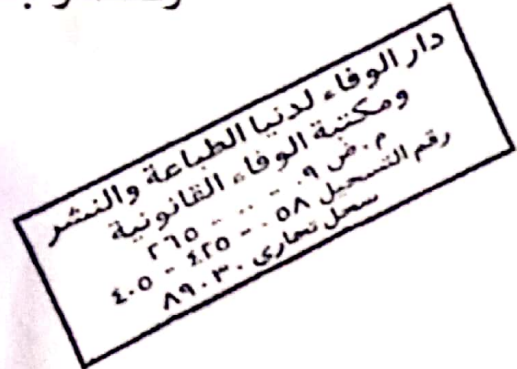 دار الوفاء لدنيا الطباعة والنشر
ومكتبة الوفاء القانونية
م. ض ٠٩ - ٠٠ - ٢٦٥
رقم التسجيل ٠٥٨ - ٤٢٥ - ٤٠٥
سجل تجارى ٨٩٠٣٠